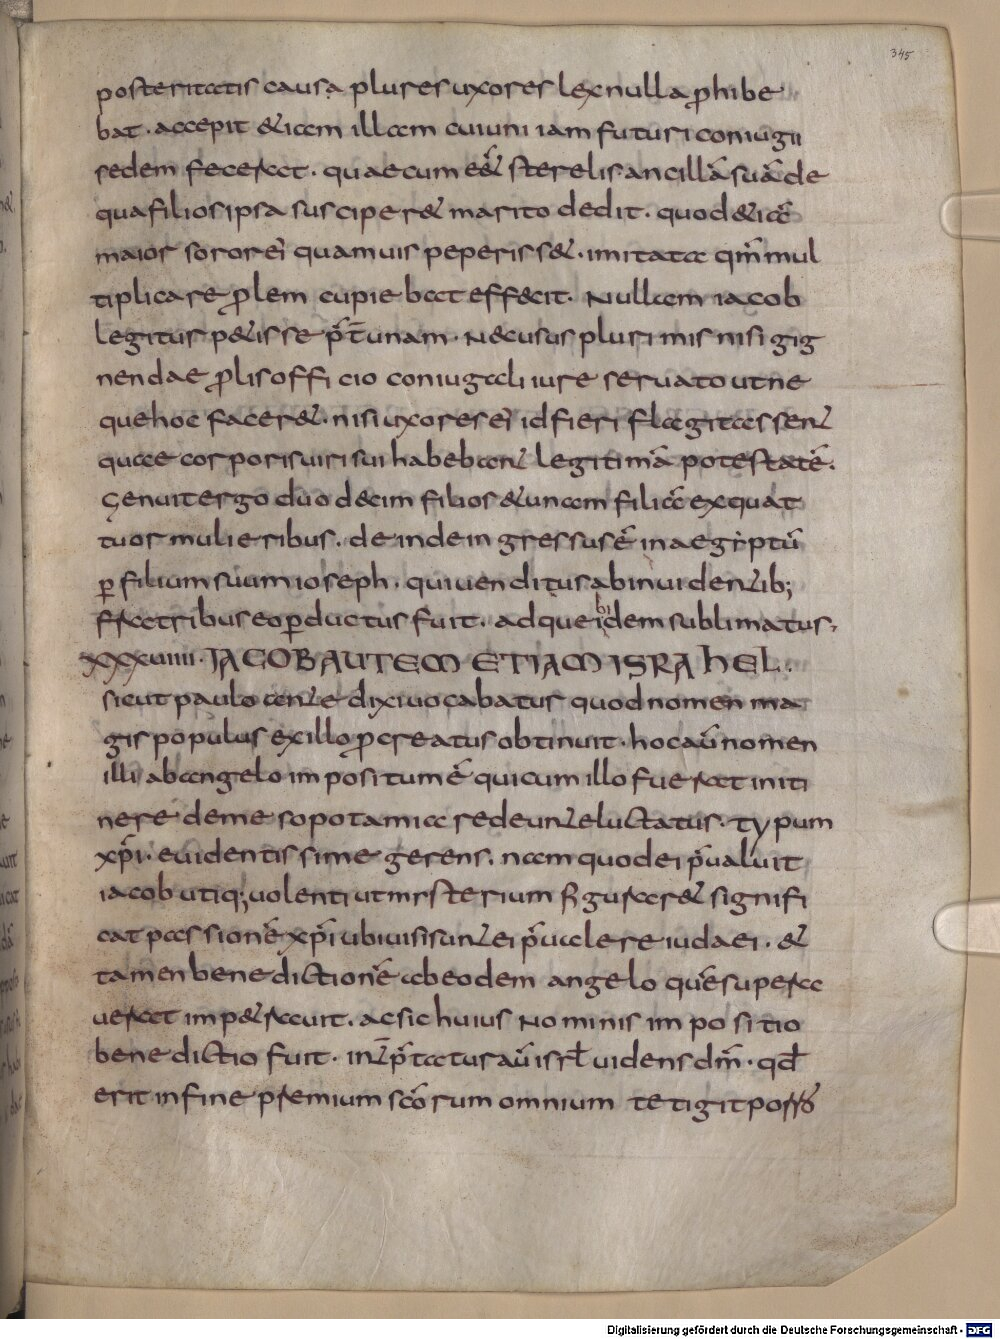 345
posteritatis causa plures uxores lex nulla ꝓhibe
bat · accepit & iam illam cui uni iam futuri coniugii
fedem fecerat · quae cum eēt sterelis ancillā suā de
qua filios ipsa susciper& marito dedit · quod & iā
maior soror ei quamuis peperiss& · imitata qm̄ mul
tiplicare ꝓlem cupiebat effecit · Nullam iacob
legitus p&isse p̄t unam · Nec usus plurimis nisi gig
nendae ꝓlis officio coniugali iure seruato ut ne
que hoc facer& · nisi uxores ei id fieri flagitassent
quae corporis uiri sui habebant legitimā potestatē ·
Genuit ergo duodecim filios & unam filiā ex quat
tuor mulieribus · deinde ingressus ē in aegyptū
ꝑ filium suum ioseph · qui uenditus ab inuidentib;
fratribus eo ꝑductus fuit · ad que ibidem sublimatus ·
XXXVIIII · IACOB AUTEM ETIAM ISRAHEL ·
sicut paulo ante dixi uocabatur quod nomen ma
gis populus ex illo ꝓcreatus obtinuit · hoc aū nomen
illi ab angelo impositum ē qui cum illo fuerat in iti
nere de mesopotamia redeunte luctatus · typum
xp̄i · euidentissime gerens · nam quod ei p̄ualuit
iacob utiq; uolenti ut mysterium figurar& signifi
cat passionē xp̄i ubi uisi sunt ei p̄ualere iudaei · &
tamen benedictionē ab eodem angelo quē supera
uerat imp&rauit · ac sic huius Nominis impositio
benedictio fuit · int̄p̄tatur aū isrł uidens dm̄ · qđ
erit in fine premium scōrum omnium tetigit porro
Digitalisierung gefördert durch die Deutsche Forschungsgemeinschaft - DFG